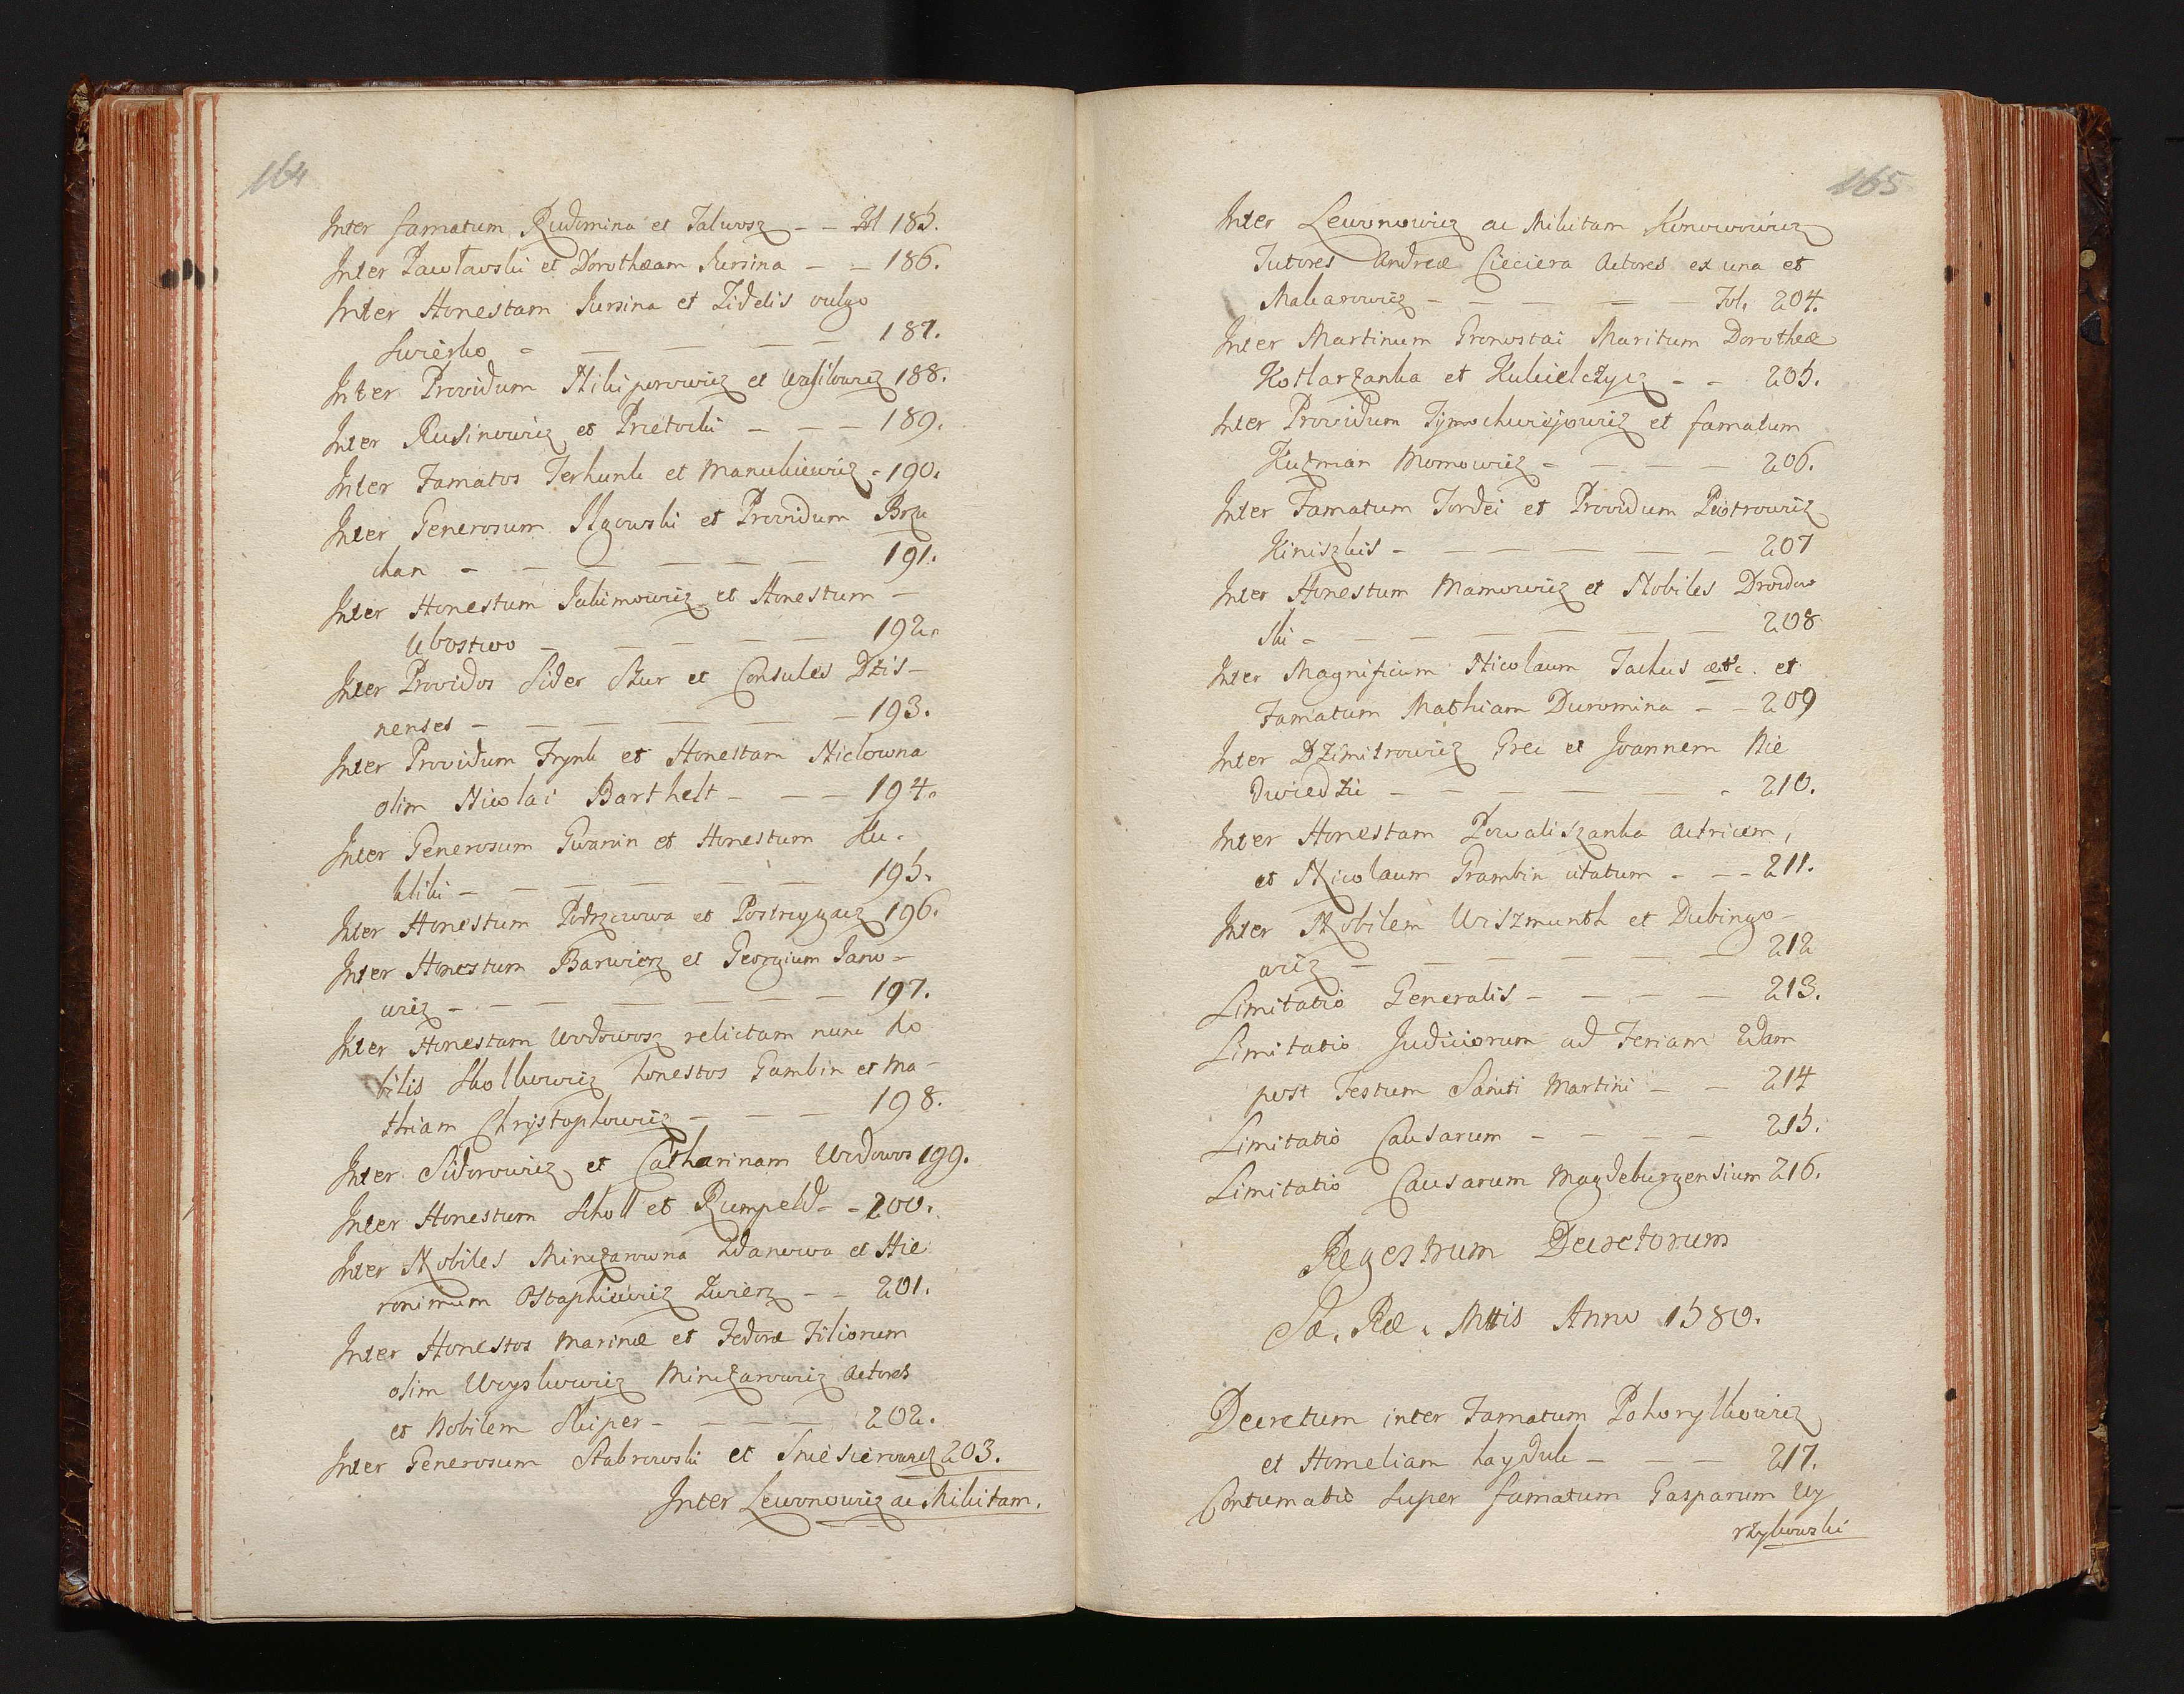 164
Inter famatum Rudomina et Talwosz - - Fol 185.
Inter Pawławski et Dorotheam Kursina - - 186.
Inter Honestam Kursina et Fidelis vulgo
Swiesko - - - - - 187.
Inter Providum Nikiporowicz et Wasilowicz 188.
Inter Rusinowicz et Prietocki - - - 189.
Inter Famatos Terhunk et Manukiewicz - 190.
Inter Generosum Ilgowski et Providum Brzu
chan - - - - - - 191.
Inter Honestum Jakimowicz et Honestum -
Ubostwo - - - - - 192.
Inter Providos Sider Skur et Consules Dzis-
nenses - - - - - - 193.
Inter Providum Frynk et Honestam Niclowna
olim Nicolai Barthelt - - - 194.
Inter Generosum Gwanin et Honestum Ku-
kliki - - - - - - 195.
Inter Honestum Podrzewwa et Postrzygacz 196.
Inter Honestum Barwierz et Georgium Jano-
wicz - - - - - - - 197.
Inter Honestam Wodowosz relictam nunc No
bilis Skolkowicz honestos Gambin et Ma-
thiam Chrystophowicz - - - 198.
Inter Sidorowicz et Catharinam Wodowos 199.
Inter Honestum Scholl et Rumpeld - - 200.
Inter Nobiles Minczarowna Zdanowa et Hie
ronimum Ostaphiewicz Zwierz - - 201.
Inter Honestos Marinæ et Fedoræ Filiorum
olim Woyskowicz Minczarowicz Actores
et Nobilem Skiper - - - - 202.
Inter Generosum Stabrowski et Sniesierowicz 203.
Inter Lewonowicz ac Mikitam.
165
Inter Lewonowicz ac Mikitam Konowowicz
Tutores Andreæ Cieciera Actores ex una et
Makarowicz - - - - - Fol. 204.
Inter Martinum Gronostai Maritum Dorotheæ
Kotlarzanka et Kukielczycz - - 205.
Inter Providum Tymochwiejowicz et famatum
Kuzman Momowicz - - - - 206.
Inter Famatum Tordei et Providum Piotrowicz
Kiniszkis - - - - - - 207
Inter Honestum Mamowicz et Nobiles Drozdow
ski - - - - - - - 208
Inter Magnificum Nicolaum Jackus etc. et
Famatum Mathiam Duromina - - 209
Inter Dzimitrowicz Grec et Joannem Nie
dwiedzki - - - - - - 210.
Inter Honestam Powaliszanka Actricem,
et Nicolaum Grambin citatum - - - 211.
Inter Nobilem Wiszmunth et Dubingo-
wicz - - - - - - - 212
Limitatio Generalis - - - - 213.
Limitatio Judiciorum ad Feriam 2dam
post Festum Sancti Martini - - 214
Limitatio Causarum - - - - 215.
Limitatio Causarum Magdeburgensium 216.
Regestrum Decretorum
Sæ. Ræ. Mttis Anno 1589.
Decretum inter Famatum Pohorylkowicz
et Homeliam hayduk - - - 217.
Contumatio super famatum Gasparum Uy
rzykowski